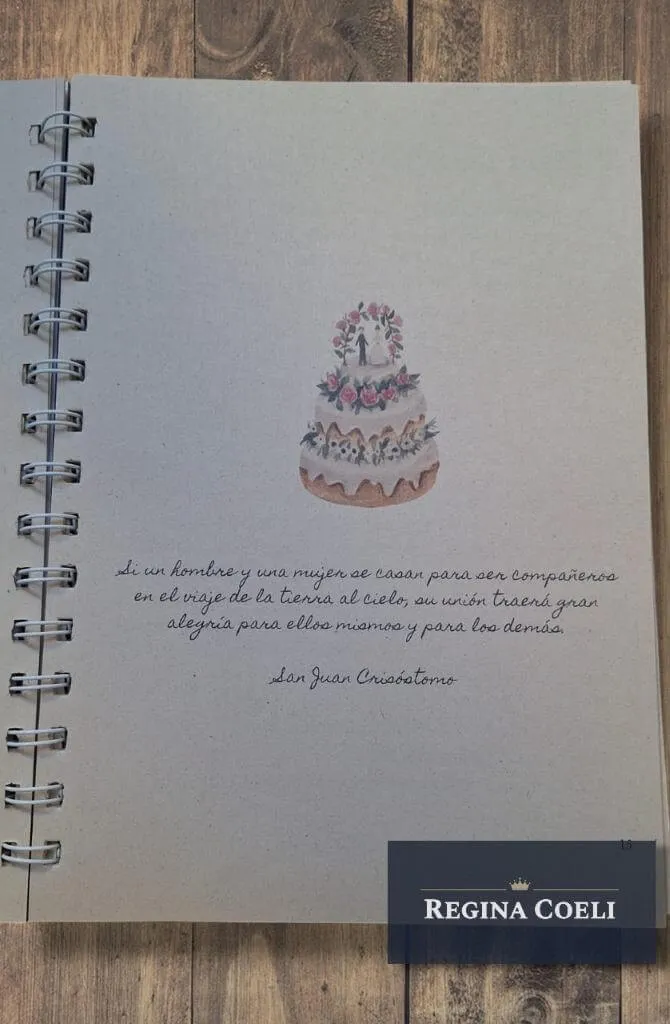 Si un hombre y una mujer se casan para ser compañeros
en el viaje de la tierra al cielo, su unión traerá gran
alegría para ellos mismos y para los demás.
San Juan Crisóstomo
15
REGINA COELI